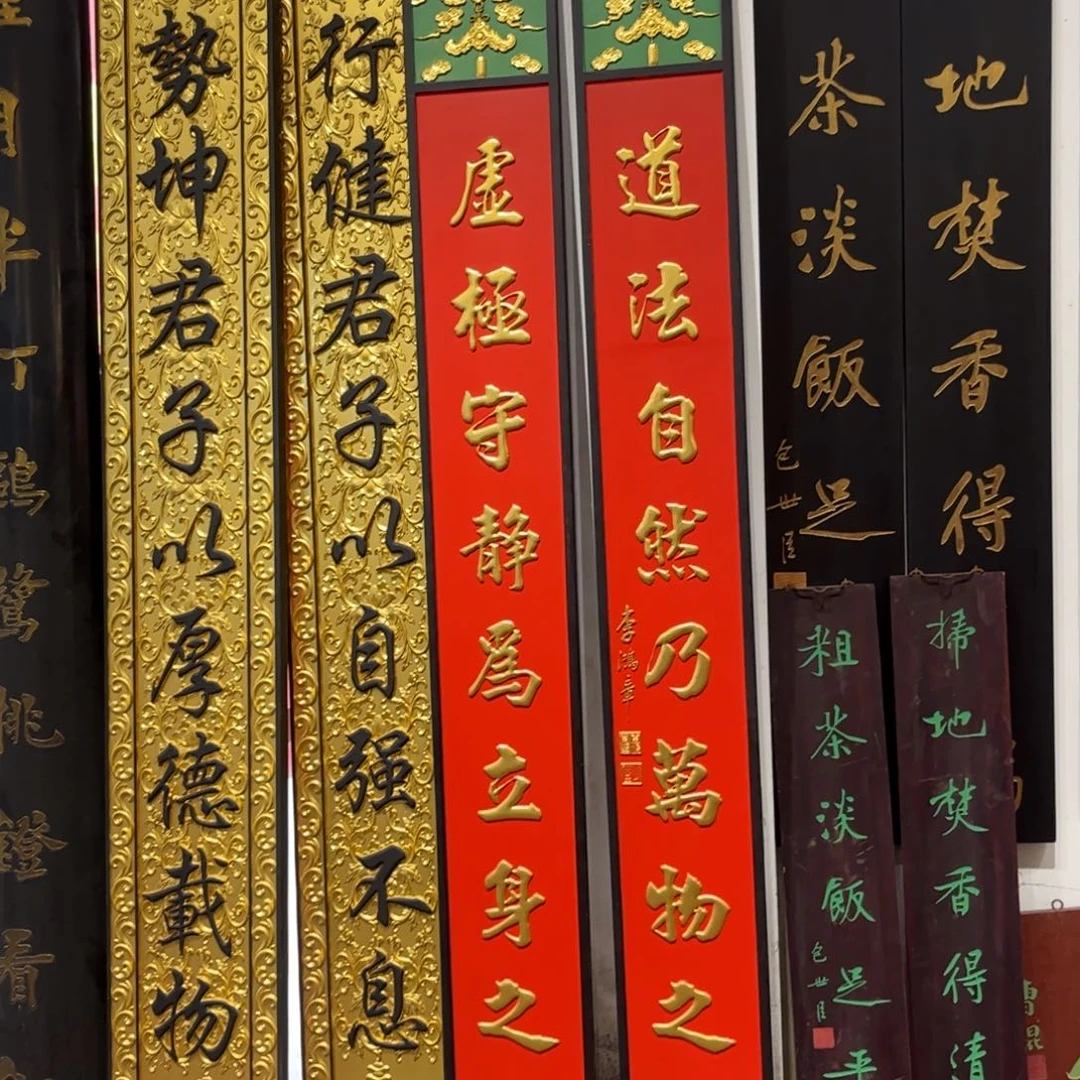 地焚香得
茶淡飯足
包世臣
掃地焚香得清
粗茶淡飯足平
包世臣
曹錕
道法自然乃萬物之
李鴻章
虛極守静爲立身之
行健君子以自强不息
勢坤君子以厚德載物
鷺
鐙看